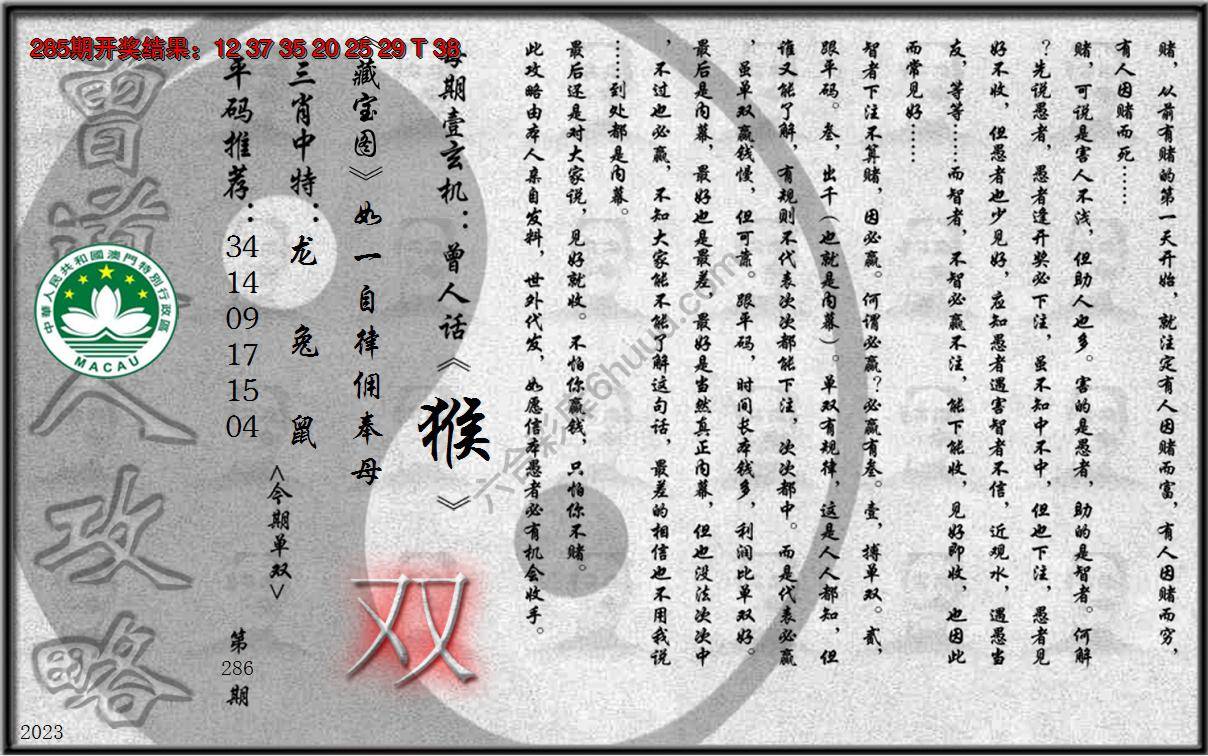 285期开奖结果：12 37 35 20 25 29 T 38
赌，从前有赌的第一天开始，就注定有人因赌而富，有人因赌而穷，
有人因赌而死……
赌，可说是害人不浅，但助人也多。害的是愚者，助的是智者。何解
？先说愚者，愚者逢开奖必下注，虽不知中不中，但也下注，愚者见
好不收，但愚者也少见好，应知愚者遇害智者不信，近观水，遇愚当
友，等等……而智者，不智必赢不注，能下能收，见好即收，也因此
而常见好……
智者下注不算赌，因必赢。何谓必赢？必赢有叁。壹，搏单双。贰，
跟平码。叁，出千（也就是内幕）。单双有规律，这是人人都知，但
谁又能了解，有规则不代表次次都能下注，次次都中。而是代表必赢
，虽单双赢钱慢，但可靠。跟平码，时间长本钱多，利润比单双好。
最后是内幕，最好也是最差，最好是当然真正内幕，但也没法次次中
，不过也必赢，不知大家能不能了解这句话，最差的相信也不用我说
……到处都是内幕。
最后还是对大家说，见好就收。不怕你赢钱，只怕你不赌。
此攻略由本人亲自发料，世外代发，如愿信本愚者必有机会收手。
每期壹玄机：曾人话《猴》
《藏宝图》如一自律佣奉母
双
三肖中特：龙 兔 鼠
<今期单双>
平码推荐：
34
14
09
17
15
04
第
286
期
曾道人攻略
中華人民共和國澳門特別行政區
MACAU
2023